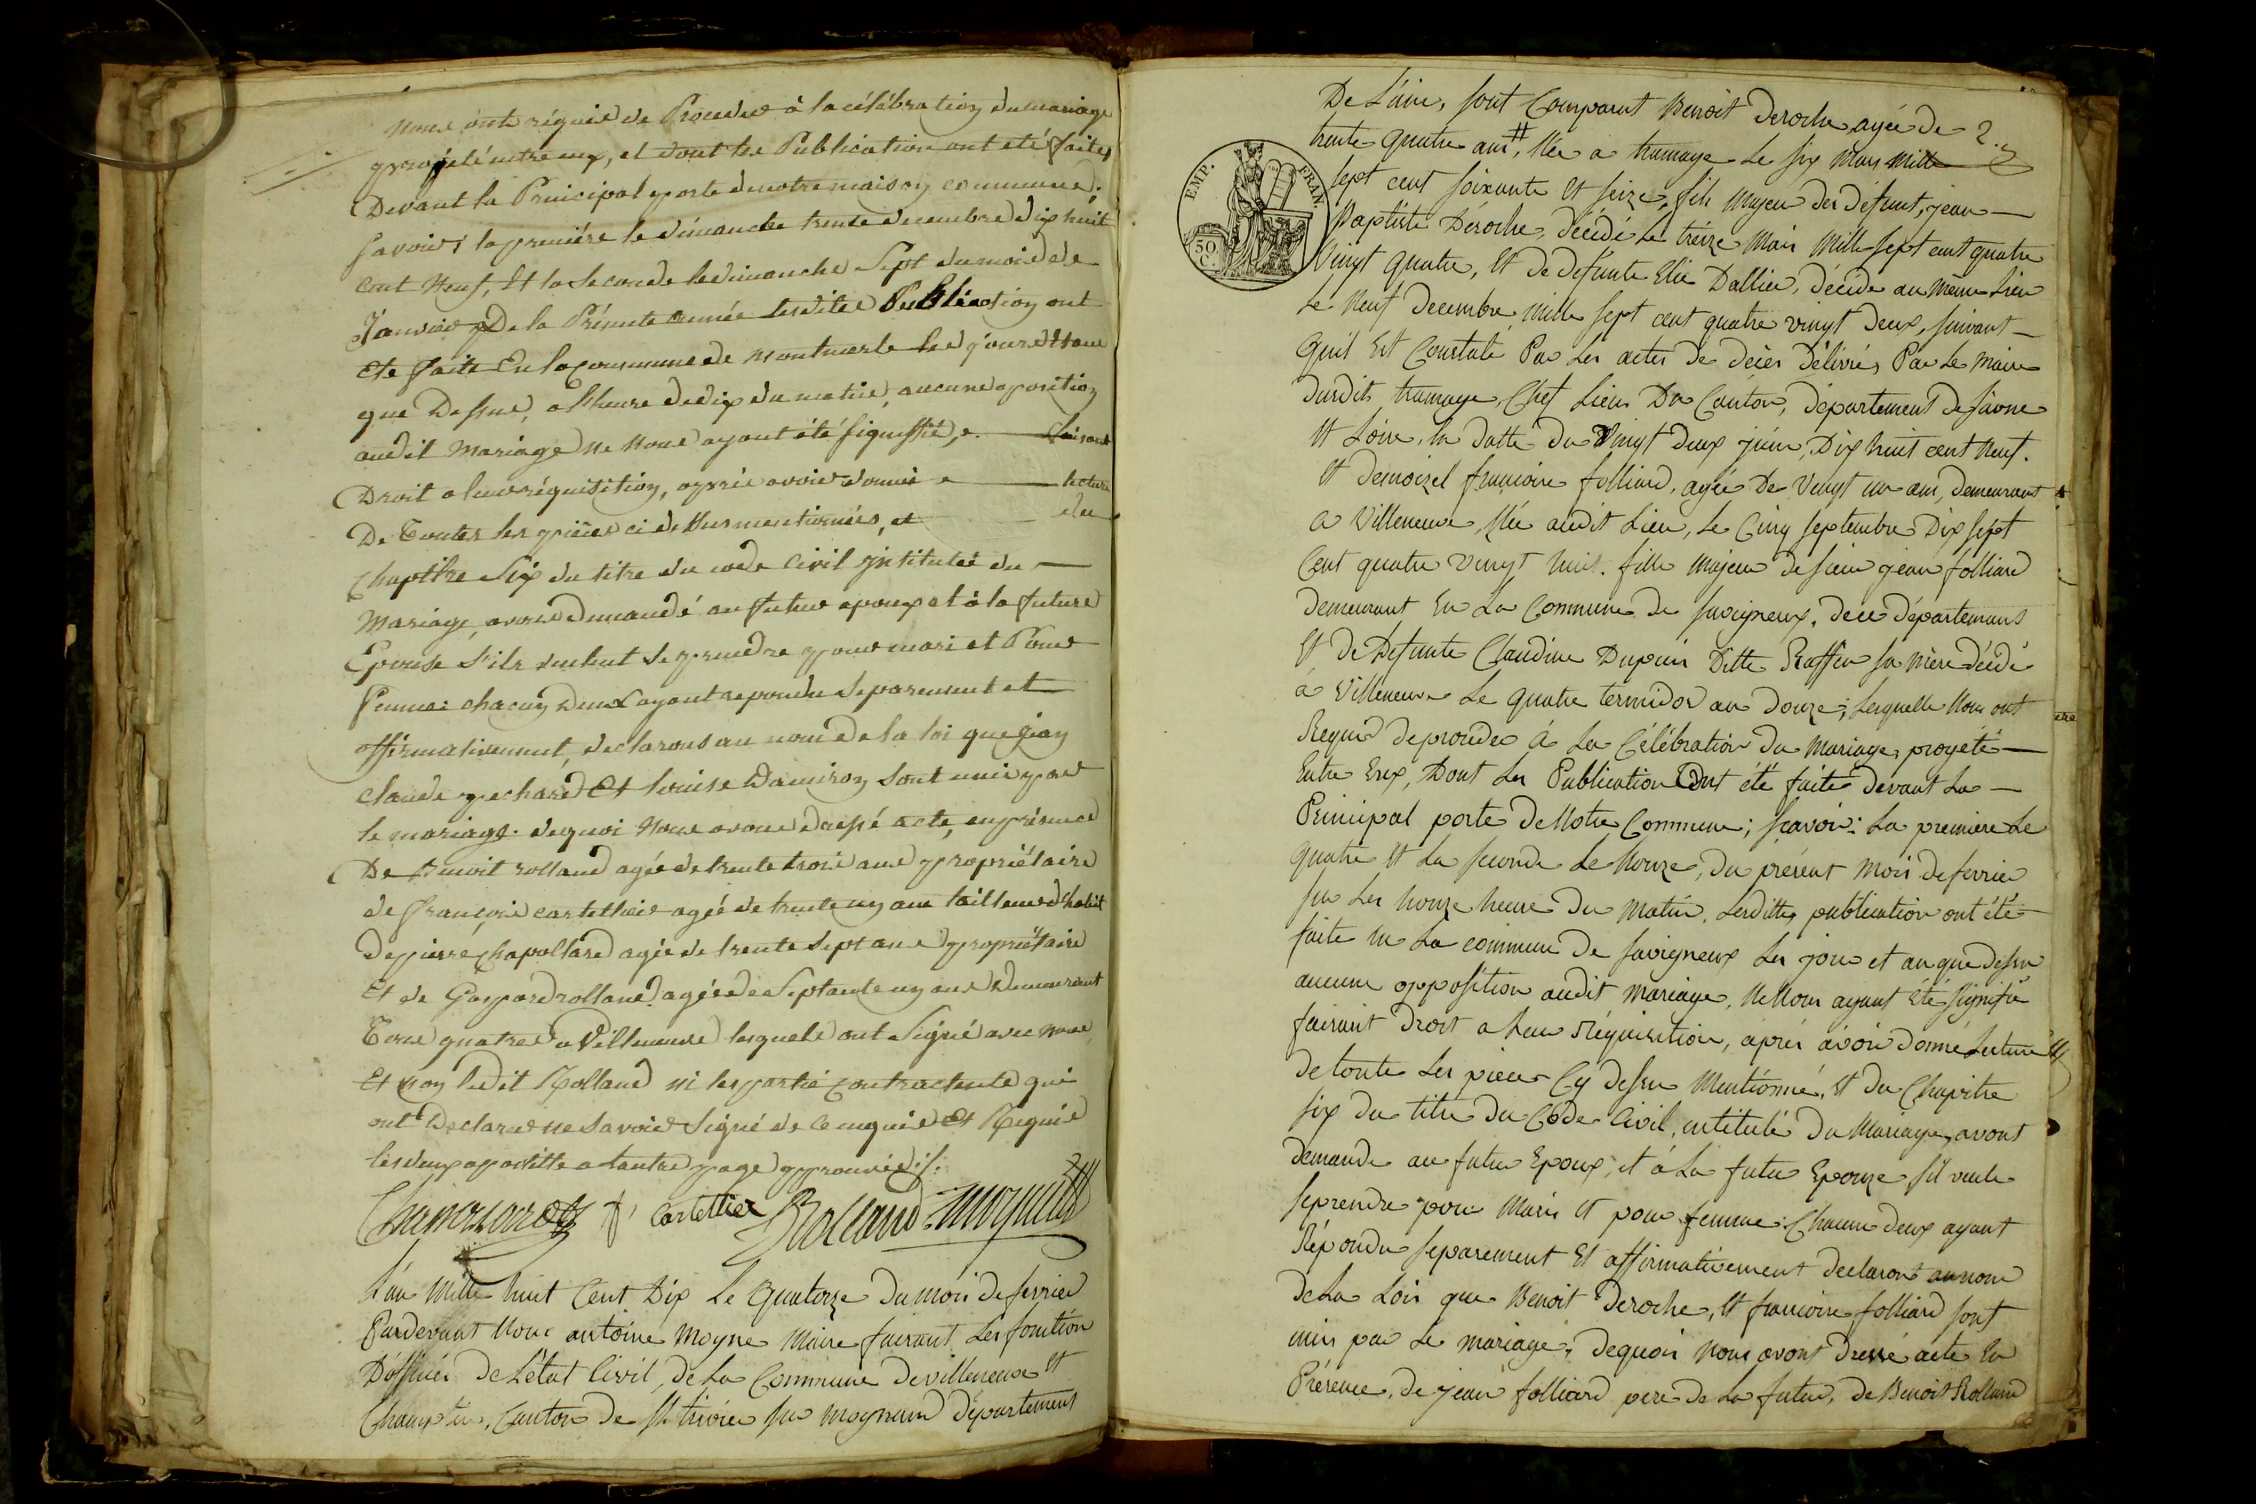 nous ont réquis de Proceder à la célébration du mariage
projeté entre eux, et dont les Publication ont eté faites
Devant la Principal porte de notre maison commune;
Savoir; la première le dimanche trente decembre dix huit
cent Neuf, Et la Seconde le dimanche Sept du mois de
Janvier De la Présente année lesdites Publication ont
ete faite En la commune de Montmerle les jours Et
que Dessus, a l'heure de dix du matin, aucune oposition
audit Mariage ne Nous ayant été signiffié, faisant
Droit a leur réquisition, après avoir donné lecture
De Toutes les pièces ci dessus mentionnées, et du
Chapitre Six du titre du code Civil intitulé du
Mariage, avons demandé au futur epoux et à la future
Epouse s'ils veulent se prendre pour mari et Pour
Femme: chacun deux ayant repondu separement et
affirmativement, declarons au nom de la loi que Jean
claude pechard Et louise Damiron Sont unis par
le mariage. de quoi Nous avons dressé acte, en présence
De Benoit rolland agée de trente trois ans propriétaire
de François cartellier agée de trente un ans tailleur d'habit
de pierre Chapollard agée de trente Sept ans propriétaire
Et de Gaspard rolland agée de Septante un ans Demeurant
Tous quatres a Villeneuve lesquels ont Signé avec nous
Et non ledit Rolland ni les partie contractente qui
ont Declarer ne Savoir Signé de ce enquis Et Requis
les deux apostille a l'autre page approuvées ./.
Cartellier Rolland Moyne
L'an Mille huit Cent Dix Le Quatorze Du mois de fevrier
Pardevant Nous antoine Moyne Maire faisant Les fonction
D'officier De L'état Civil, De La Commune De villeneuve Et
Champteins, Canton de St trivier sur Moynand Département
De L'ain, sont Comparut Benoit Deroche, agée De 2.
trente quatre ans #, Née a tramaye Le six Mars Mille
sept cent soixante Et seize, fils Majeur des Defunt, jean
Baptiste Déroche, Décédé Le treize Mars Mille sept cent quatre
Vingt quatre, Et De Defunte Elie Dallier, Décédé au Même Lieu
Le Neuf Decembre Mille sept cent quatre vingt Deux, suivant
Quil Est Constaté Par Les actes De Décès Délivrés Par Le Maire
Dudit tramaye, Chef Lieu De Canton, département De saone
Et Loire, en Datte Du vingt deux juin, Dix huit cent Neuf.
Et Demoizel françoise folliard, agée De Vingt un ans, Demeurant
a Villeneuve, Née audit Lieu, Le Cinq septembre Dix sept
Cent quatre vingt huit. fille Majeur De sieur jean folliard
Demeurant En La Commune De savigneux, De ce département
Et De Defunte Claudine Dupuis Ditte Raffin sa Mère Décédé
à Villeneuve Le quatre termidor an Douze; Lesquelle Nous ont
Requis De proceder À La Célébration Du Mariage projeté
Entre Eux, Dont Les Publication Ont été faite Devant La
Principal porte De Notre Commune; scavoir: La premiere Le
quatre Et La seconde Le honze, Du présent Mois De fevrier
sur Les honze heure Du Matin, Lesdittes publication ont été
faite En La commune De savigneux Les jour et an que Dessus
aucune opposition audit Mariage, Ne Nous ayant Eté signifié
faisant Droit a Leur Réquisition, aprés avoir Donné Lecture
de toute Les piéces Cy Dessus Mentionné, Et Du Chapitre
six Du titre Du Code Civil, intitulé Du Mariage, avont
Demande au futur Epoux, et á La futur Epouze s'il veule
se prendre pour Maris Et pour femme: Chacun Deux ayant
Répondu separement Et affirmativement Declaront au nom
De La Lois que Benoit Deroche, Et francoise folliard sont
unis par Le Mariage; De quois Nous avont Dressé acte En
Présence, De jean folliard pere De La futur, De Benoit Rolland
EMP. FRAN.
50
C.